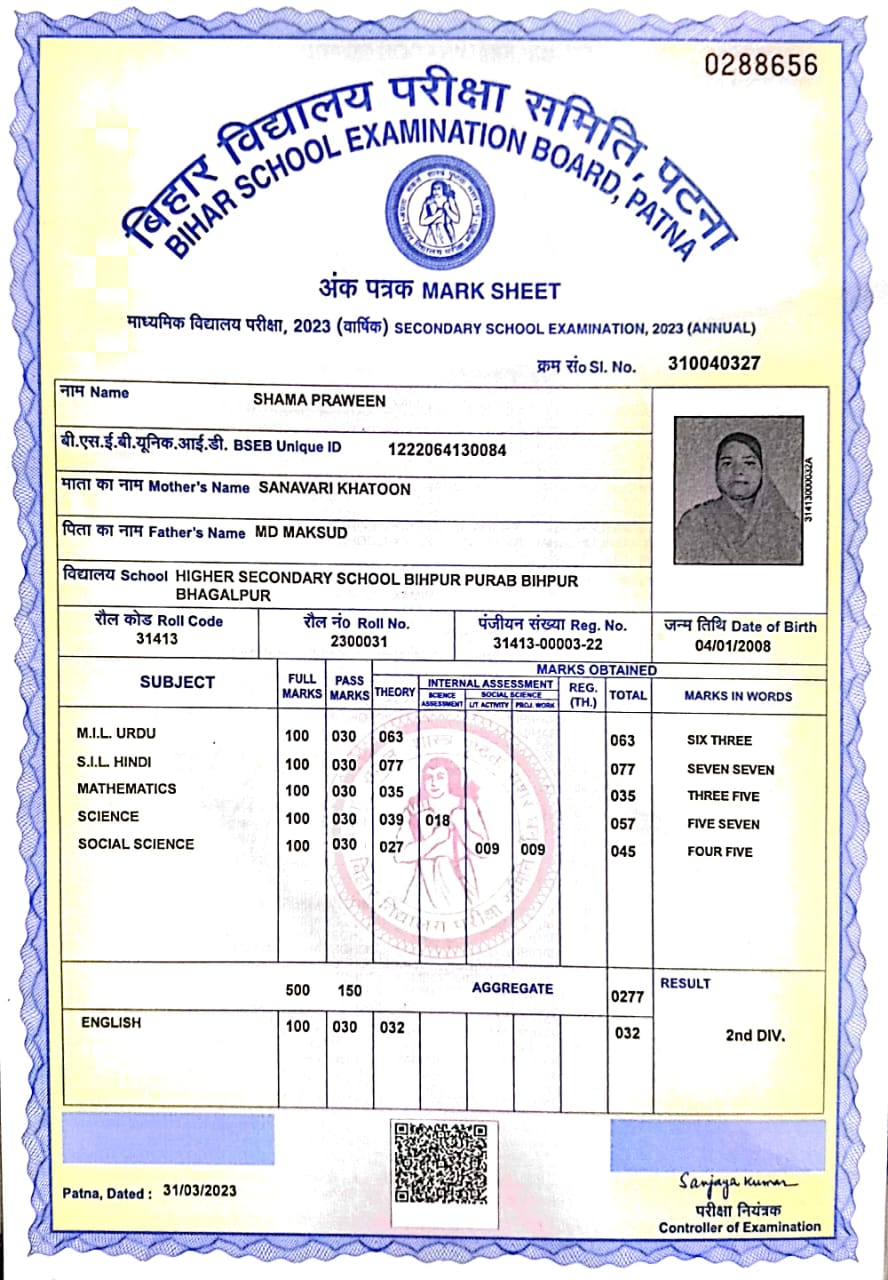 0288656
बिहार विद्यालय परीक्षा समिति, पटना
BIHAR SCHOOL EXAMINATION BOARD, PATNA
अंक पत्रक MARK SHEET
माध्यमिक विद्यालय परीक्षा, 2023 (वार्षिक) SECONDARY SCHOOL EXAMINATION, 2023 (ANNUAL)
क्रम सं० SI. No. 310040327
नाम Name SHAMA PRAWEEN
बी.एस.ई.बी.यूनिक.आई.डी. BSEB Unique ID 1222064130084
माता का नाम Mother's Name SANAVARI KHATOON
पिता का नाम Father's Name MD MAKSUD
31413000032A
विद्यालय School HIGHER SECONDARY SCHOOL BIHPUR PURAB BIHPUR
BHAGALPUR
रौल कोड Roll Code रौल नं० Roll No. पंजीयन संख्या Reg. No. जन्म तिथि Date of Birth
31413 2300031 31413-00003-22 04/01/2008
SUBJECT FULL MARKS PASS MARKS MARKS OBTAINED
THEORY INTERNAL ASSESSMENT REG. (TH.) TOTAL MARKS IN WORDS
SCIENCE ASSESSMENT SOCIAL SCIENCE
LIT ACTIVITY PROJ. WORK
M.I.L. URDU 100 030 063 063 SIX THREE
S.I.L. HINDI 100 030 077 077 SEVEN SEVEN
MATHEMATICS 100 030 035 035 THREE FIVE
SCIENCE 100 030 039 018 057 FIVE SEVEN
SOCIAL SCIENCE 100 030 027 009 009 045 FOUR FIVE
500 150 AGGREGATE 0277 RESULT
ENGLISH 100 030 032 032 2nd DIV.
Patna, Dated : 31/03/2023
Sanjaya Kumar
परीक्षा नियंत्रक
Controller of Examination